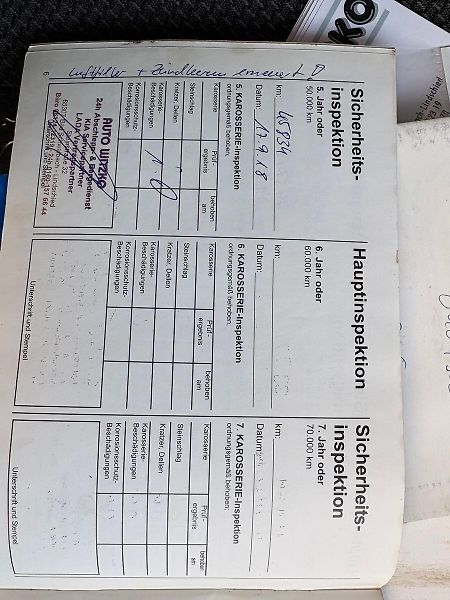 Sicherheits-
inspektion
5. Jahr oder
50.000 km
km: 45834
Datum: 17.9.18
5. KAROSSERIE-Inspektion
ordnungsgemäß behoben.
Karosserie
Prüf-
ergebnis
behoben
am
Steinschlag
Kratzer, Dellen
Karosserie-
Beschädigungen
Korrosionsschutz-
Beschädigungen
1.0
AUTO WITZKO
24h Abschlepp- & Pannendienst
KIA Servicepartner
LADA Servicepartner
Luftfilter + Zündkerzen erneuert
6
Hauptinspektion
6. Jahr oder
60.000 km
km:
Datum:
6. KAROSSERIE-Inspektion
ordnungsgemäß behoben.
Karosserie
Prüf-
ergebnis
behoben
am
Steinschlag
Kratzer, Dellen
Karosserie-
Beschädigungen
Korrosionsschutz-
Beschädigungen
Unterschrift und Stempel
Sicherheits-
inspektion
7. Jahr oder
70.000 km
km:
Datum:
7. KAROSSERIE-Inspektion
ordnungsgemäß behoben.
Karosserie
Prüf-
ergebnis
behoben
am
Steinschlag
Kratzer, Dellen
Karosserie-
Beschädigungen
Korrosionsschutz-
Beschädigungen
Unterschrift und Stempel